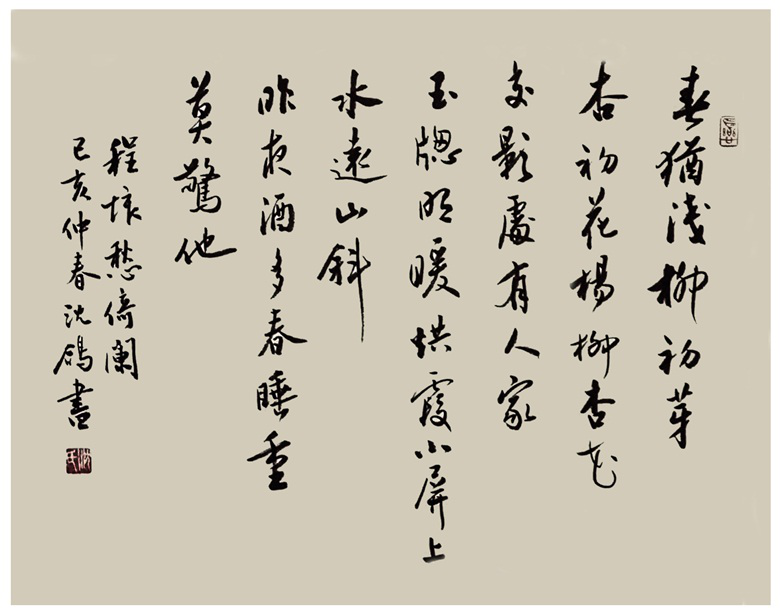 春猶淺柳初芽
杏初花楊柳杏花
交影處有人家
玉窗明暖烘霞小屏上
水遠山斜
昨夜酒多春睡重
莫驚他
程垓愁倚闌
己亥仲春沈鴿書